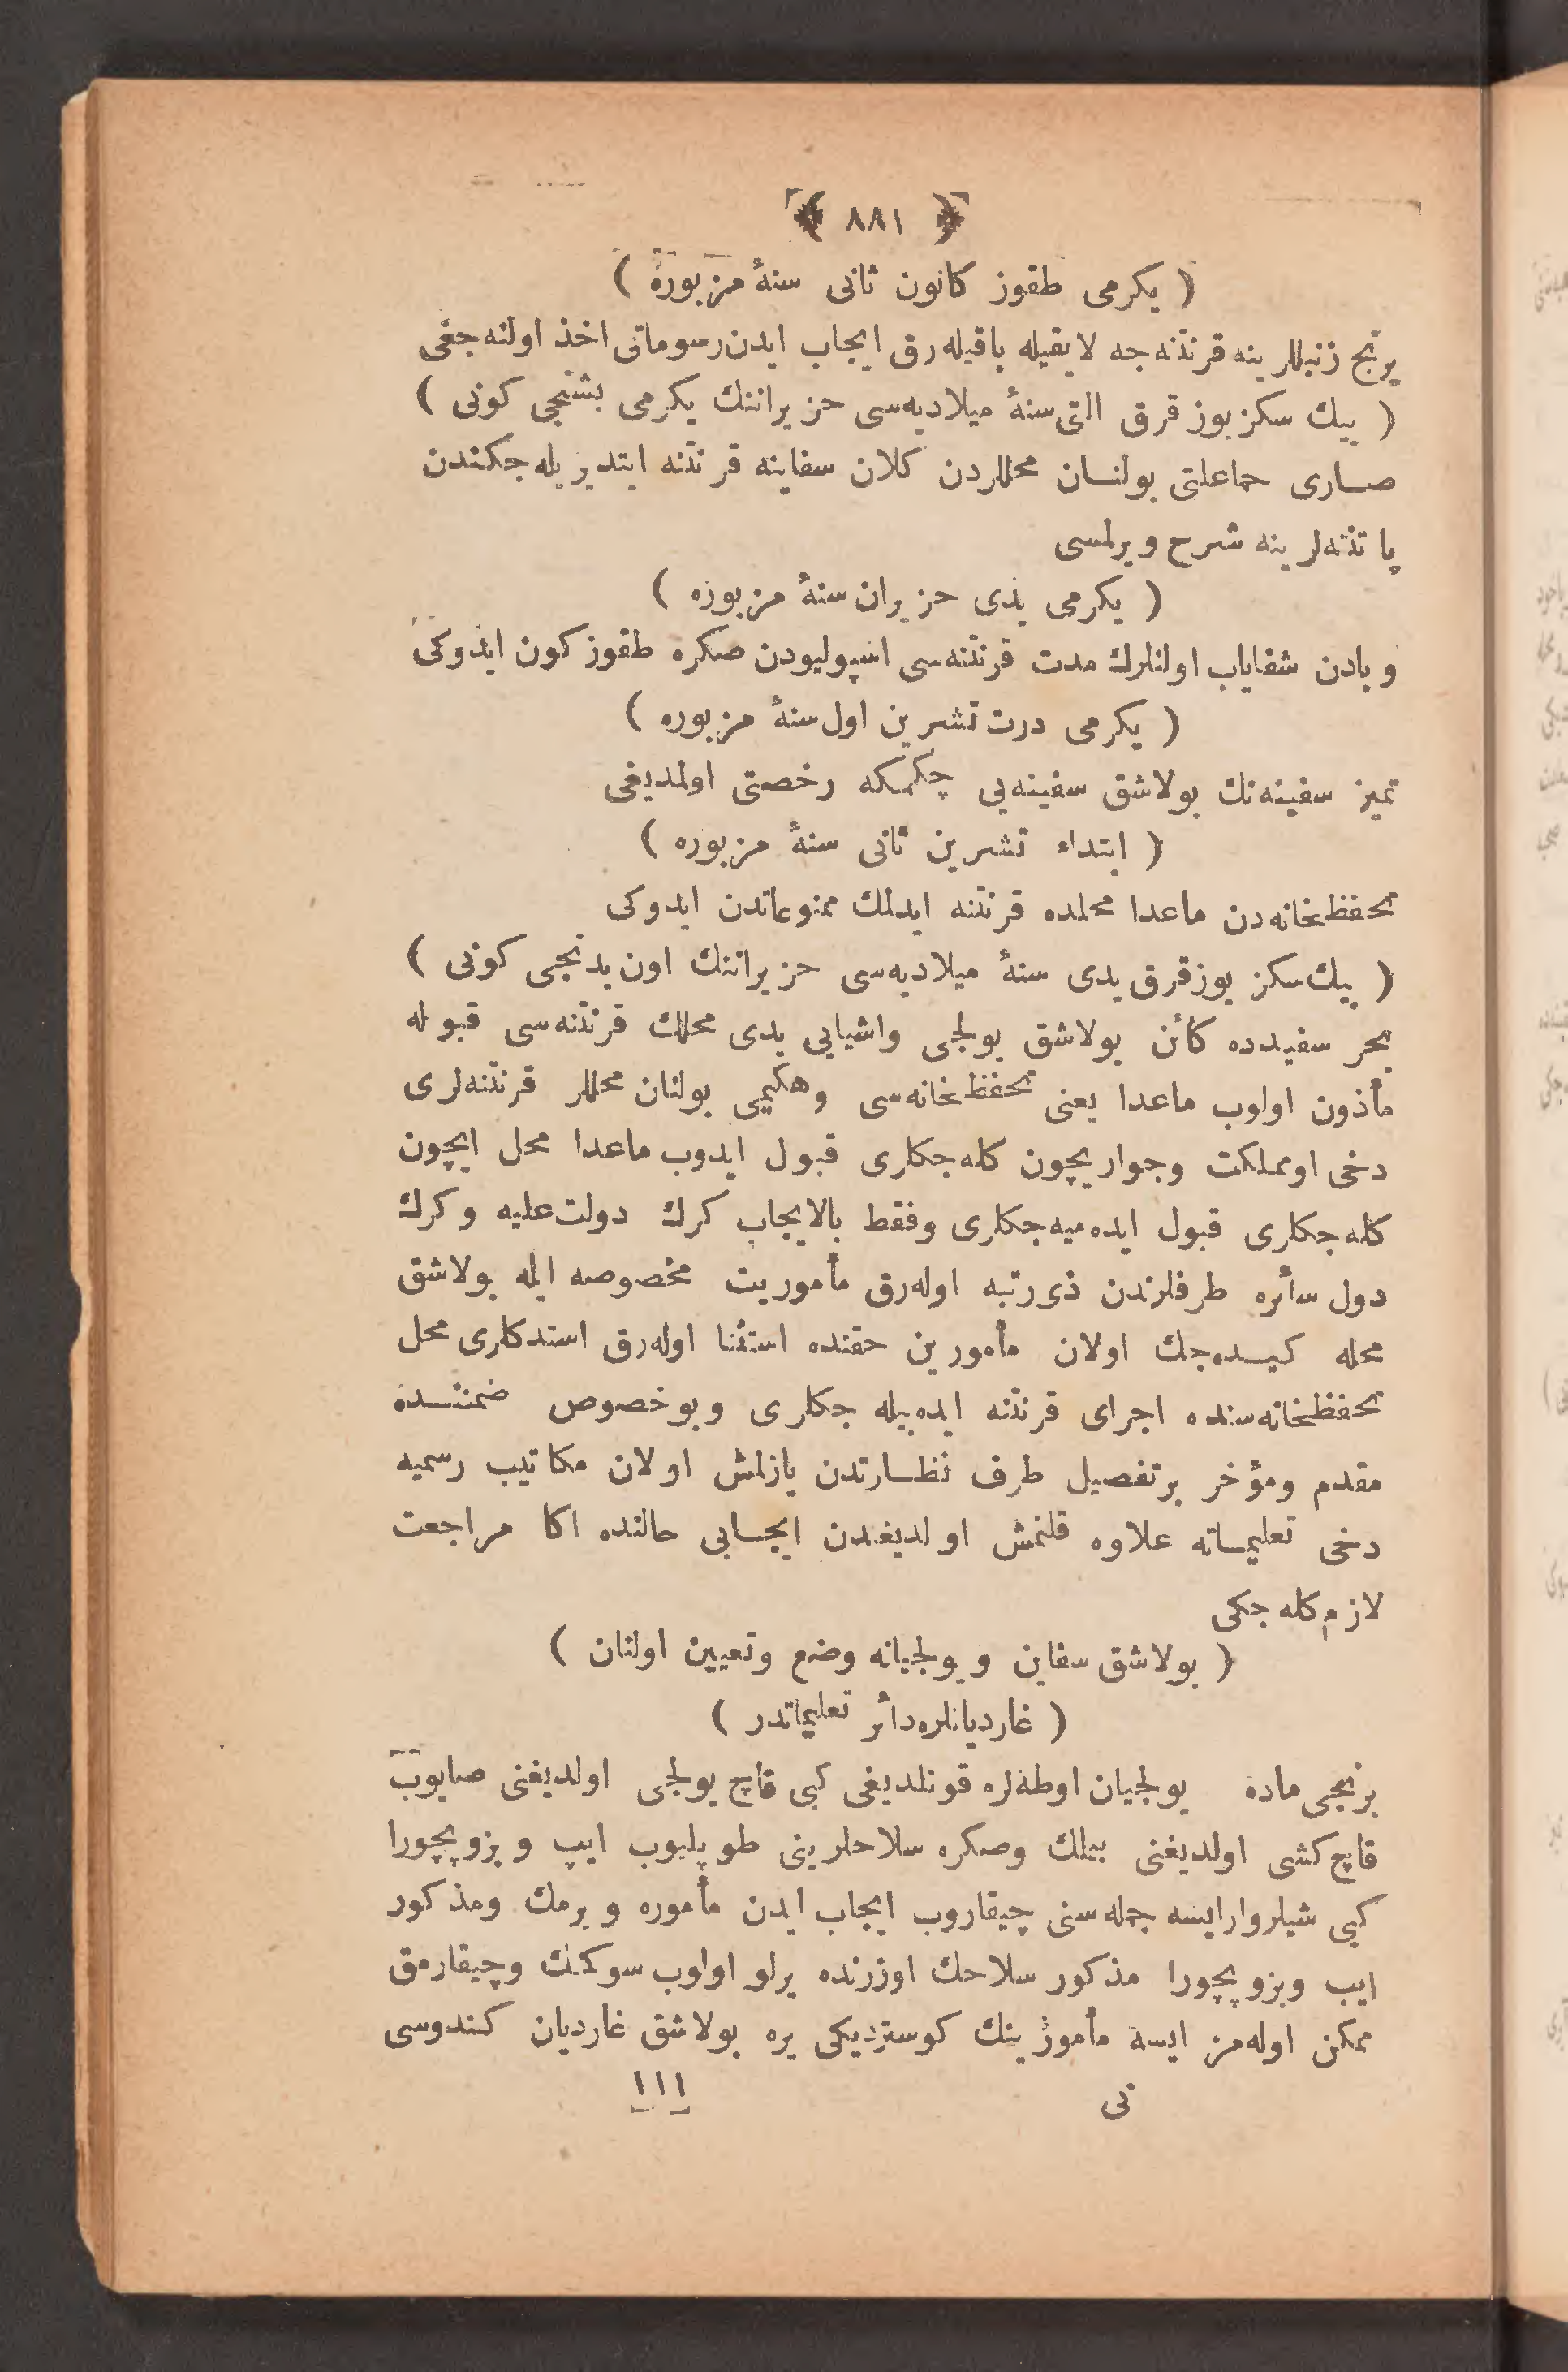 ﴿ ٨٨١ ﴾
( يكرمى طقوز كانون ثانى سنهٔ مزبوره )
پرنج زنبللرينه قرنتنه‌جه لايقيله باقيله‌رق ايجاب ايدن رسوماتى اخذ اولنه‌جغى
( بيك سكز يوز قرق التى سنهٔ ميلاديه‌سى حزيراننك يكرمى بشنجى كونى )
صارى حماعلتى بولنسان محللردن كلان سفاينه قرنتنه ايتديريله‌جكندن
پاتنته‌لرينه شرح ويرلمسى
( يكرمى يدى حزيران سنهٔ مزبوره )
وبادن شفاياب اولنلرك مدت قرنتنه‌سى اسپوليودن صكره طقوز كون ايدوكى
( يكرمى درت تشرين اول سنهٔ مزبوره )
تميز سفينه‌نك بولاشق سفينه‌يى چكمكه رخصتى اولمديغى
( ابتداء تشرين ثانى سنهٔ مزبوره )
تحفظخانه‌دن ماعدا محلده قرنتنه ايدلمك ممنوعاتدن ايدوكى
( بيك سكز يوز قرق يدى سنهٔ ميلاديه‌سى حزيراننك اون يدنجى كونى )
بحر سفيدده كائن بولاشق يولجى واشيايى يدى محللك قرنتنه‌سى قبوله
مأذون اولوب ماعدا يعنى تحفظخانه‌سى وهكيمى بولنان محللر قرنتنه‌لرى
دخى اومملكت وجواريچون كله‌جكلرى قبول ايدوب ماعدا محل ايچون
كله‌جكلرى قبول ايده‌ميه‌جكلرى وفقط بالايجاب كرك دولت‌عليه وكرك
دول سائره طرفلرندن ذى‌رتبه اوله‌رق مأموريت مخصوصه ايله بولاشق
محله كيده‌جك اولان مأمورين حقنده استثنا اوله‌رق استدكلرى محل
تحفظخانه‌سنده اجراى قرنتنه ايده‌بيله جكلرى وبوخصوص ضمننده
مقدم ومؤخر برتفصيل طرف نظارتدن يازلمش اولان مكاتيب رسميه
دخى تعليماته علاوه قلنمش اولديغندن ايجابى حالنده اكا مراجعت
لازم كله‌جكى
( بولاشق سفاين ويولجيانه وضع وتعيين اولنان )
( غارديانلره‌دائر تعليماتدر )
برنجى ماده يولجيان اوطه‌لره قونلديغى كبى قاچ يولجى اولديغنى صايوب
قاچ كشى اولديغنى بيلمك وصكره سلاحلرينى طوپليوب ايپ وبزوپچورا
كبى شيلروارايسه جمله‌سنى چيقاروب ايجاب ايدن مأموره ويرمك ومذكور
ايب وبزوپچورا مذكور سلاحك اوزرنده يرلو اولوب سوكمك وچيقارمق
ممكن اوله‌مز ايسه مأمورينك كوستردیكى يره بولاشق غارديان كندوسى
نى ١١١